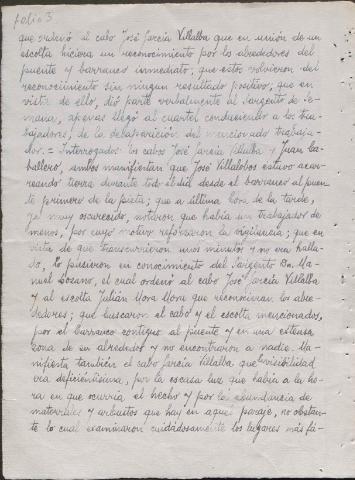 Folio 3
que ordenó al cabo José García Villalba que en unión de un
escolta hiciera un reconocimiento por los alrededores del
puente y barranco inmediato; que estos volvieron del
reconocimiento sin ningun resultado positivo, que en
vista de ello, dió parte verbalmente al Sargento de se-
mana, apenas llegó al cuartel conduciendo a los tra-
bajadores, de la desaparición del mencionado trabaja-
dor. = Interrogados los cabos José García Villalba y Juan Ca-
ballero, ambos manifiestan que José Villalobos estuvo aca-
rreando tierra durante todo el día desde el barranco al puen-
te primero de la pista; que a última hora de la tarde,
ya muy oscurecido, notaron que había un trabajador de
menos, por cuyo motivo reforzaron la vigilancia; que en
vista de que transcurrieron unos minutos y no era halla-
do, lo pusieron en conocimiento del Sargento Dn. Ma-
nuel Lozano, el cual ordenó al cabo José García Villalba
y al escolta Julián Mora Mora que reconocieran los alre-
dedores; que buscaron el cabo y el escolta mencionados,
por el barranco contiguo al puente y en una extensa
zona de su alrededor y no encontraron a nadie. Ma-
nifiesta también el cabo García Villalba que la visibilidad
era deficientísima, por la escasa luz que había a la ho-
ra en que ocurría el hecho y por la abundancia de
materiales y arbustos que hay en aquel paraje, no obstan-
te lo cual examinaron cuidadosamente los lugares más fá-